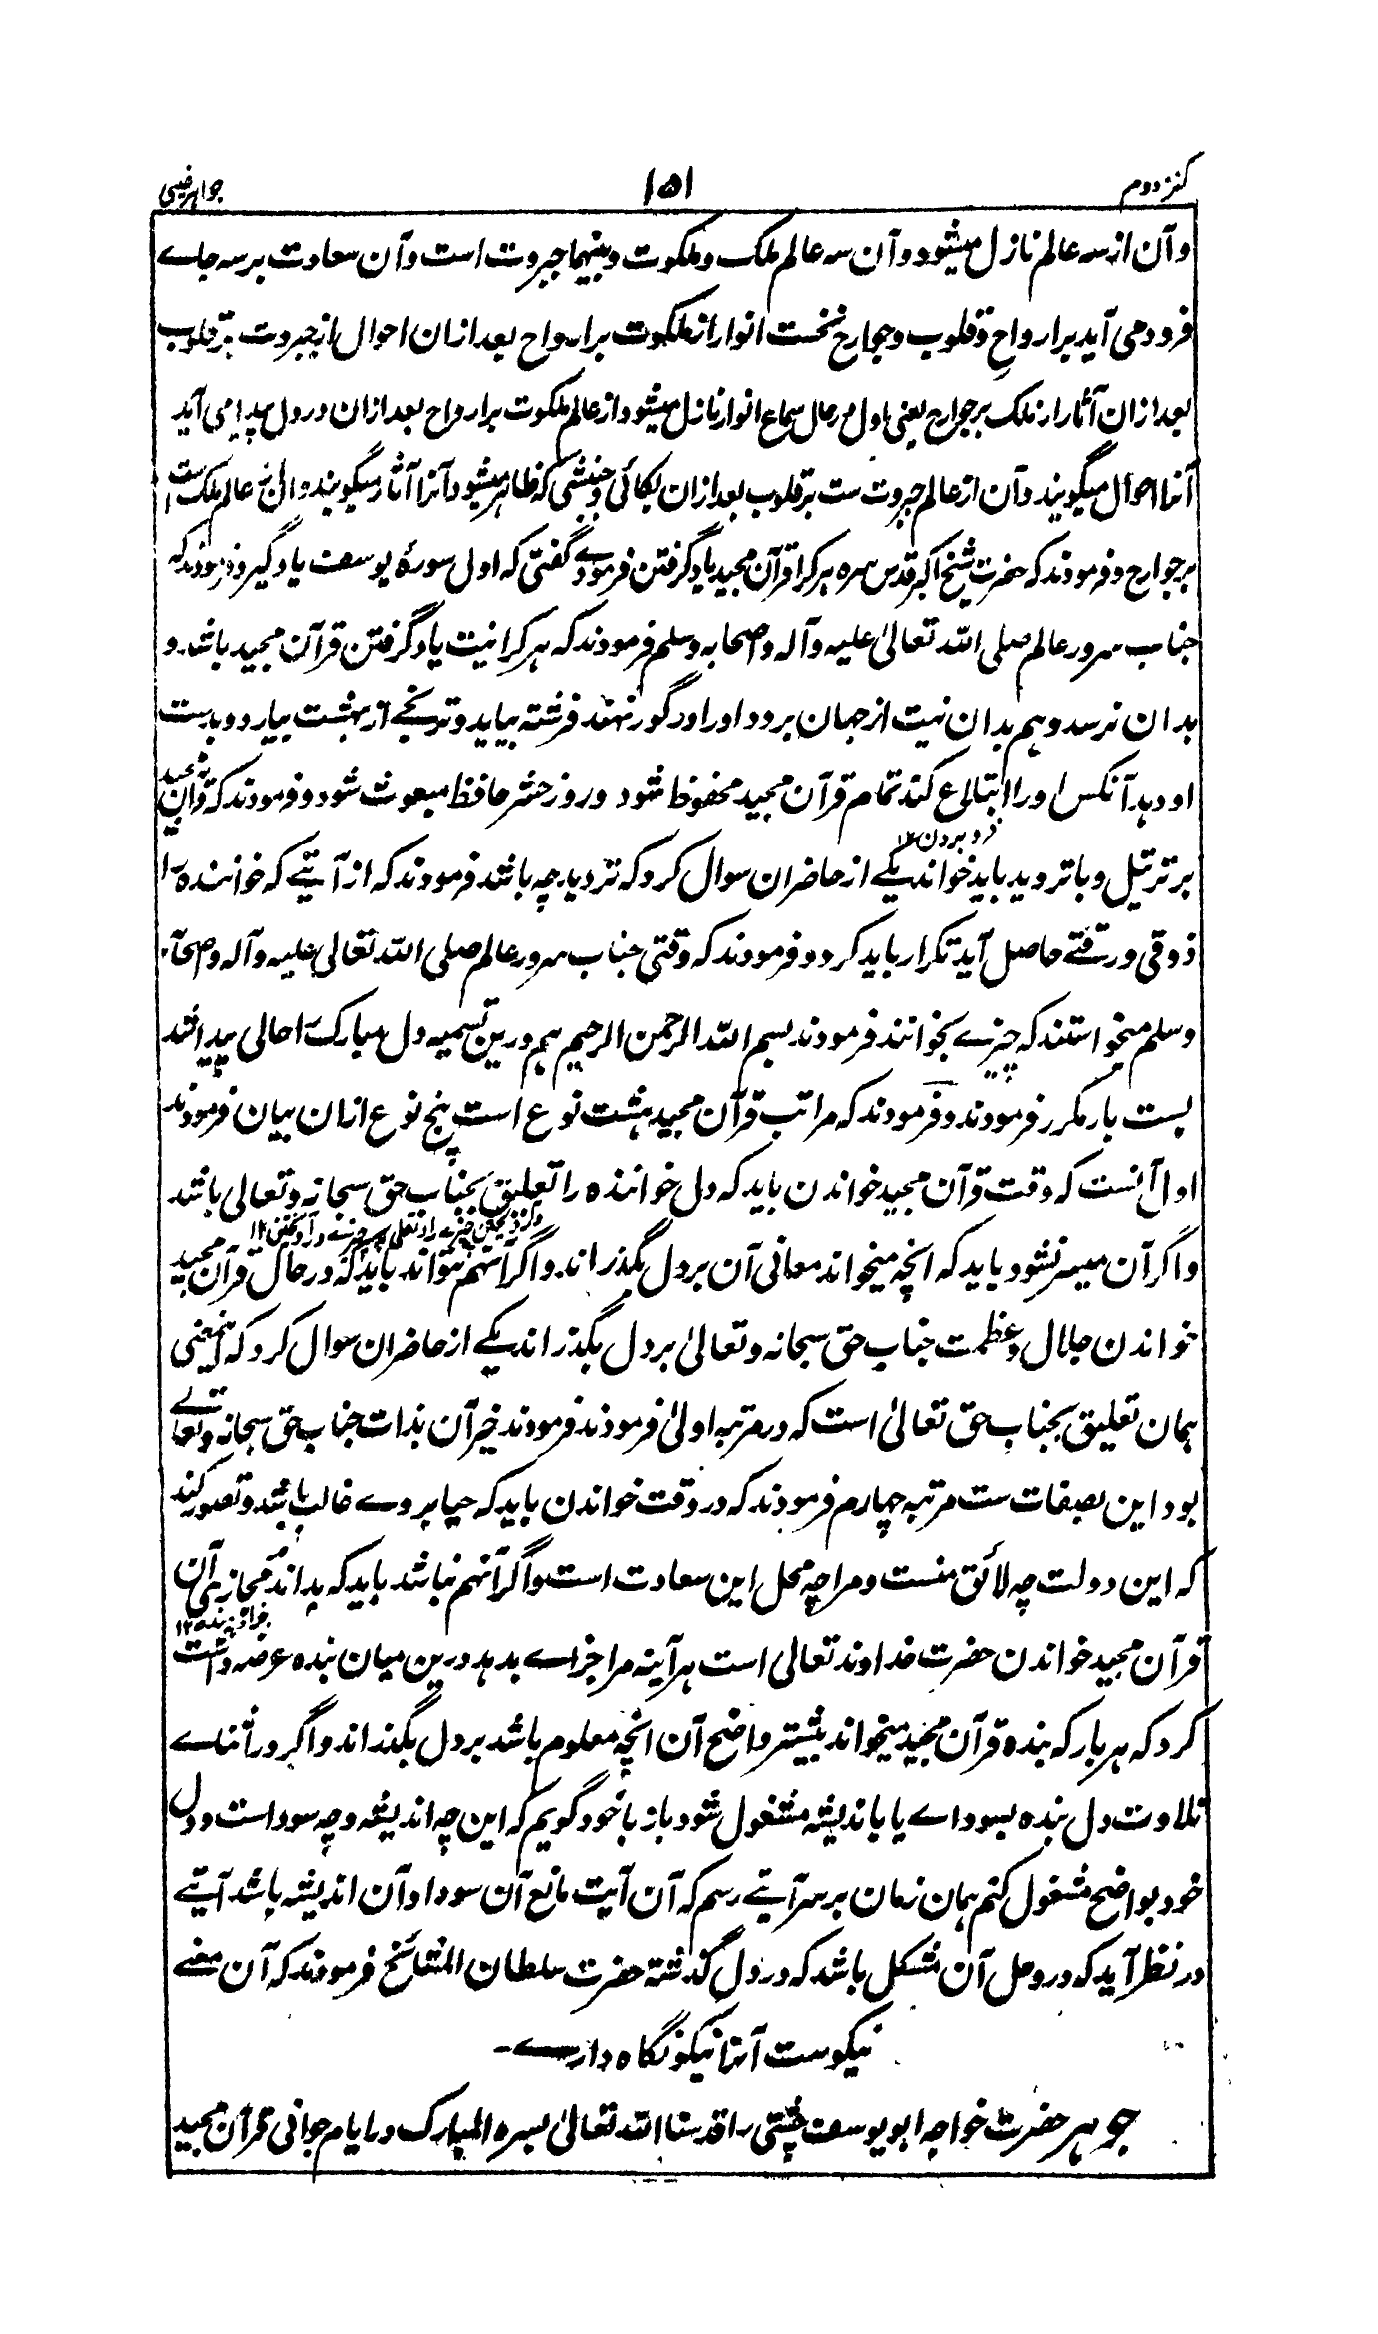 کنز دوم
۱۵۱
جواہر غیبی
و آن از سه عالم نازل میشود و آن سه عالم ملک و ملکوت و بینهما جبروت است و آن سعادت بر سه جاے
فرود می آید بر ارواح و قلوب و جوارح نخست انوار از ملکوت بر ارواح بعد ازان احوال از جبروت بر قلوب
بعد ازان آثار از ملک بر جوارح یعنی اول در حال سماع انوار نازل میشود از عالم ملکوت بر ارواح بعد ازان در دل پیدا می آید
آنرا احوال میگویند و آن از عالم جبروت ست بر قلوب بعد ازان بکائی و جنبشی که ظاهر میشود آنرا آثار میگویند و از عالم ملک است
بر جوارح و فرمودند که حضرت شیخ اکبر قدس سره هر کرا قرآن مجید یاد گرفتن فرمودے گفتی که اول سورهٔ یوسف یاد گیر و فرمودند که
جناب سرور عالم صلی الله تعالیٰ علیه و آله و صحابه وسلم فرمودند که هر کرا نیت یاد گرفتن قرآن مجید باشد و
بدان نرسد و هم بدان نیت از جهان برود او را در گور نهند فرشته بیاید و ترنجے از بهشت بیارد و بدست
او دهد آنکس او را ابتلاع کند تمام قرآن مجید محفوظ شود و روز حشر حافظ مبعوث شود و فرمودند که قرآن مجید
فرو بردن ۱۲
بر ترتیل و با تردید باید خواند یکے از حاضران سوال کرد که تردید چه باشد فرمودند که از آیتے که خواننده را
ذوقی و رقتے حاصل آید تکرار باید کرد و فرمودند که وقتی جناب سرور عالم صلی الله تعالی علیه و آله و صحابه
وسلم میخواستند که چیزے بخوانند فرمودند بسم الله الرحمن الرحیم هم درین تسمیه دل مبارک را حالی پیدا شد
بست بار مکرر فرمودند و فرمودند که مراتب قرآن مجید هشت نوع است پنج نوع ازان بیان فرمودند
اول آنست که وقت قرآن مجید خواندن باید که دل خواننده را تعلیق بجناب حق سبحانه و تعالی باشد
و اگر آن میسر نشود باید که انچه میخواند معانی آن بر دل بگذراند و اگر آنهم نتواند باید که در حال قرآن مجید
خواندن جلال و عظمت جناب حق سبحانه و تعالیٰ بر دل بگذراند یکے از حاضران سوال کرد که اینمعنی
همان تعلیق بجناب حق تعالیٰ است که در مرتبه اولیٰ فرمودند فرمودند خیر آن بذات جناب حق سبحانه و تعالے
بود این بصفات ست مرتبه چهارم فرمودند که در وقت خواندن باید که حیا بر وے غالب باشد و تصور کند
که این دولت چه لائق منست و مرا چه محل این سعادت است و اگر آنهم نباشد باید که بداند مجازی آن
جزا دهنده ۱۲
قرآن مجید خواندن حضرت خداوند تعالی است هر آینه مرا جزاے بدهد درین میان بنده عرضه داشت
کرد که هر بار که بنده قرآن مجید میخواند بیشتر واضح آن انچه معلوم باشد بر دل بگذراند و اگر در اثناے
تلاوت دل بنده بسوداے یا باندیشه مشغول شود باز با خود گویم که این چه اندیشه و چه سودا است و دل
خود بواضح مشغول کنم همان زمان بر سر آیتے رسم که آن آیت مانع آن سودا و آن اندیشه باشد آیتے
در نظر آید که در و حل آن مشکل باشد که در دل گذشته حضرت سلطان المشائخ فرمودند که آن معنے
نیکوست آنرا نیکو نگاه دارے ـ
جوهر حضرت خواجه ابو یوسف چشتی را قدسنا الله تعالیٰ بسره المبارک در ایام جوانی قرآن مجید